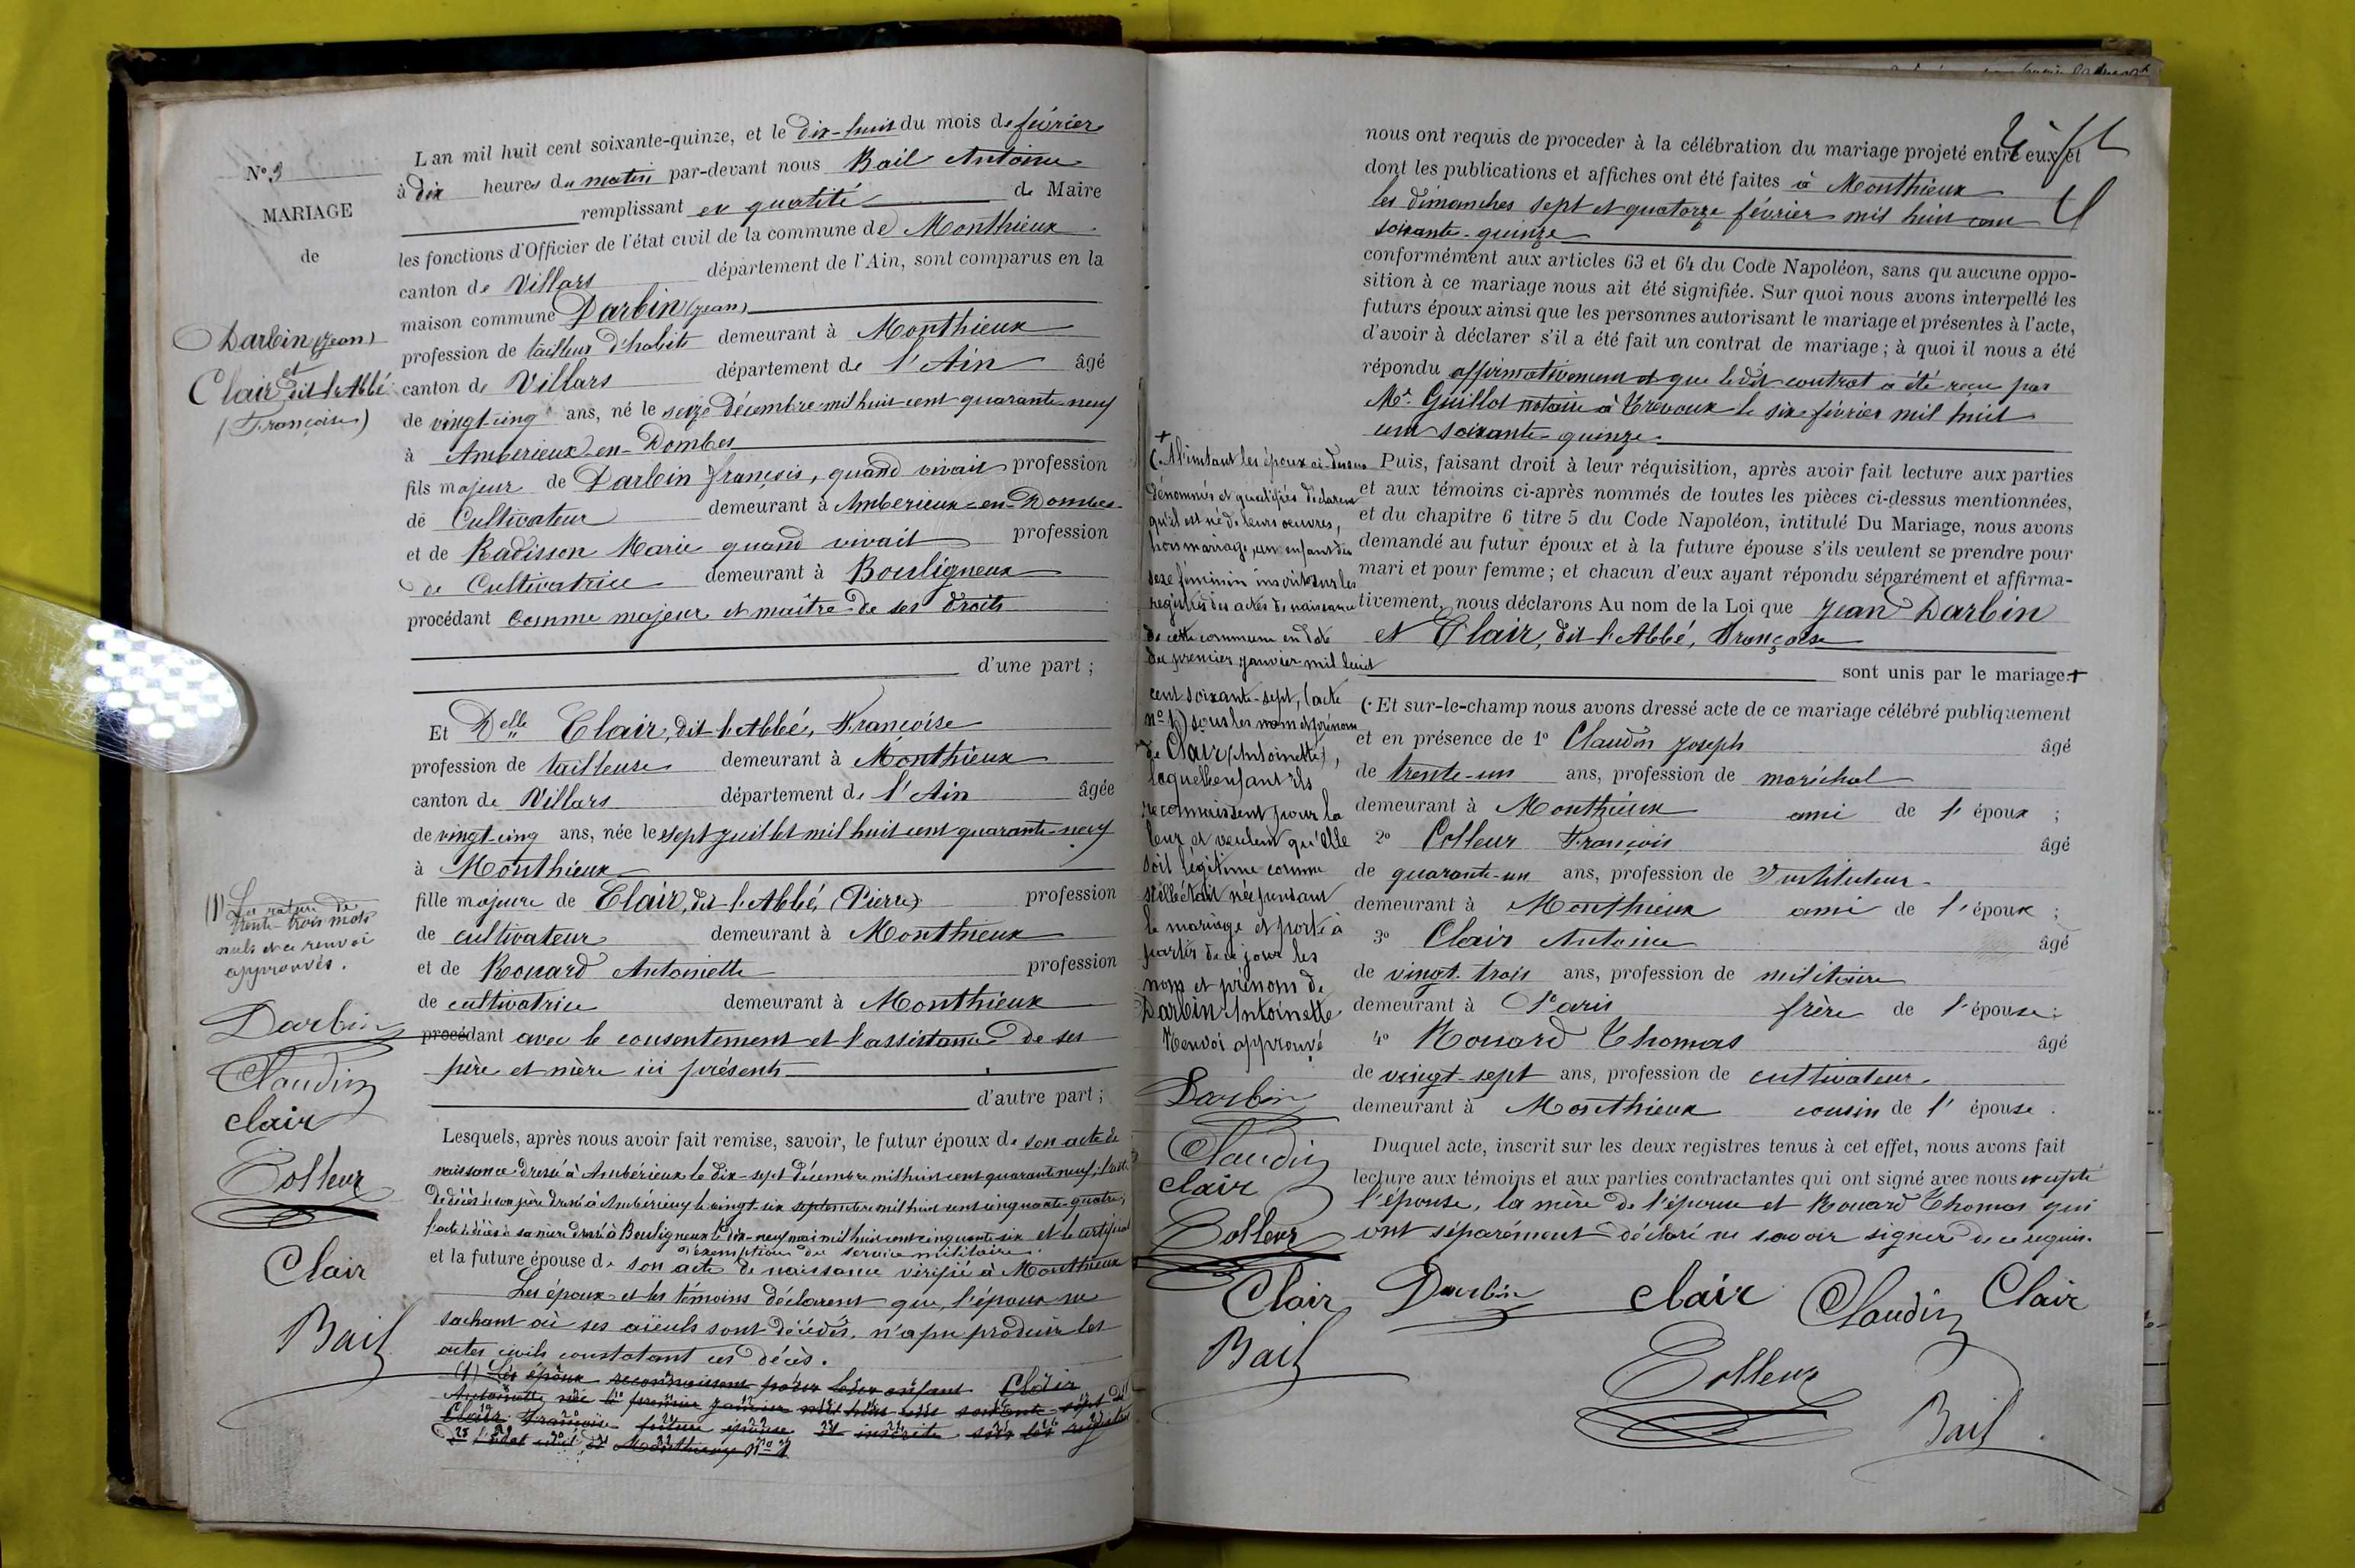 N° 3
MARIAGE
de
Darbin (Jean)
et
Clair, dit l'Abbé
(Françoise)
L'an mil huit cent soixante-quinze, et le dix-huit du mois de février
à dix heures du matin par-devant nous Bail Antoine
remplissant en qualité de Maire
les fonctions d'Officier de l'état civil de la commune de Monthieux
canton de Villars département de l'Ain, sont comparus en la
maison commune Darbin (Jean)
profession de tailleur d'habits demeurant à Monthieux
canton de Villars département de l'Ain âgé
de vingt cinq ans, né le seize décembre mil huit cent quarante-neuf
à Amberieux-en-Dombes
fils majeur de Darbin françois, quand vivait profession
de Cultivateur demeurant à Amberieux-en-Dombes
et de Radisson Marie quand vivait profession
de Cultivatrice demeurant à Bouligneux
procédant comme majeur et maître de ses droits
d'une part ;
Et Delle Clair, dit l'Abbé, Françoise
profession de tailleuse demeurant à Monthieux
canton de Villars département de l'Ain âgée
de vingt-cinq ans, née le sept juillet mil huit cent quarante-neuf
à Monthieux
fille majeure de Clair, dit l'Abbé, (Pierre) profession
de cultivateur demeurant à Monthieux
et de Rouard Antoinette profession
de cultivatrice demeurant à Monthieux
procédant avec le consentement et l'assistance de ses
père et mère ici présents
d'autre part ;
Lesquels, après nous avoir fait remise, savoir, le futur époux de son acte de
naissance dressé à Ambérieux le dix-sept décembre mil huit cent quarante neuf, l'acte
de décès de son père dressé à Ambérieux le vingt-six septembre mil huit cent cinquante quatre,
l'acte de décès de sa mère dressé à Bouligneux le dix-neuf mai mil huit cent cinquante-six et le certificat
d'exemption du service militaire.
et la future épouse de son acte de naissance vérifié à Monthieux
Les époux et les témoins déclarent que, l'époux ne
sachant où ses aïeuls sont décédés, n'a pu produire les
actes civils constatant ces décès.
(1) Les époux reconnaissent pour leur enfant Clair
Antoinette née le premier janvier mil huit cent soixante-sept de
Clair Françoise future épouse et inscrite sur les registres
de l'état civil de Monthieux N° 1
(1) La rature de
trente-trois mots
nuls et ce renvoi
approuvés.
Darbin
Claudin
Clair
Colleur
Clair
Bail
nous ont requis de proceder à la célébration du mariage projeté entre eux et
dont les publications et affiches ont été faites à Monthieux
les dimanches sept et quatorze février mil huit cent
soixante-quinze
conformément aux articles 63 et 64 du Code Napoléon, sans qu'aucune oppo-
sition à ce mariage nous ait été signifiée. Sur quoi nous avons interpellé les
futurs époux ainsi que les personnes autorisant le mariage et présentes à l'acte,
d'avoir à déclarer s'il a été fait un contrat de mariage ; à quoi il nous a été
répondu affirmativement et que le dit contrat a été reçu par
Mr. Guillot notaire à Trévoux le six février mil huit
cent soixante-quinze.
Puis, faisant droit à leur réquisition, après avoir fait lecture aux parties
et aux témoins ci-après nommés de toutes les pièces ci-dessus mentionnées,
et du chapitre 6 titre 5 du Code Napoléon, intitulé Du Mariage, nous avons
demandé au futur époux et à la future épouse s'ils veulent se prendre pour
mari et pour femme ; et chacun d'eux ayant répondu séparément et affirma-
tivement, nous déclarons Au nom de la Loi que Jean Darbin
et Clair, dit l'Abbé, Françoise
sont unis par le mariage +
(. Et sur-le-champ nous avons dressé acte de ce mariage célébré publiquement
et en présence de 1° Claudin Joseph âgé
de trente-un ans, profession de maréchal
demeurant à Monthieux ami de l'époux ;
2° Colleur François âgé
de quarante-un ans, profession de Instituteur
demeurant à Monthieux ami de l'époux ;
3° Clair Antoine âgé
de vingt-trois ans, profession de militaire
demeurant à Paris frère de l'épouse ;
4° Rouard Thomas âgé
de vingt-sept ans, profession de cultivateur
demeurant à Monthieux cousin de l'épouse.
Duquel acte, inscrit sur les deux registres tenus à cet effet, nous avons fait
lecture aux témoins et aux parties contractantes qui ont signé avec nous excepté
l'épouse, la mère de l'épouse et Rouard Thomas qui
ont séparément déclaré ne savoir signer de ce requis.
+
(. A l'instant les époux ci-dessus
dénommés et qualifiés déclarent
qu'il est né de leurs oeuvres,
hors mariage, un enfant du
sexe féminin inscrit sur les
registres des actes de naissance
de cette commune en date
du premier janvier mil huit
cent soixante-sept, (acte
n° 1) sous les nom et prénom
de Clair (Antoinette),
laquelle enfant ils
reconnaissent pour la
leur et veulent qu'elle
soit légitime comme
si elle était née pendant
le mariage et porte à
partir de ce jour les
nom et prénom de
Darbin Antoinette
Renvoi approuvé
Darbin
Claudin
Clair
Colleur
Clair Darbin Clair Claudin Clair
Bail
Colleur
Bail